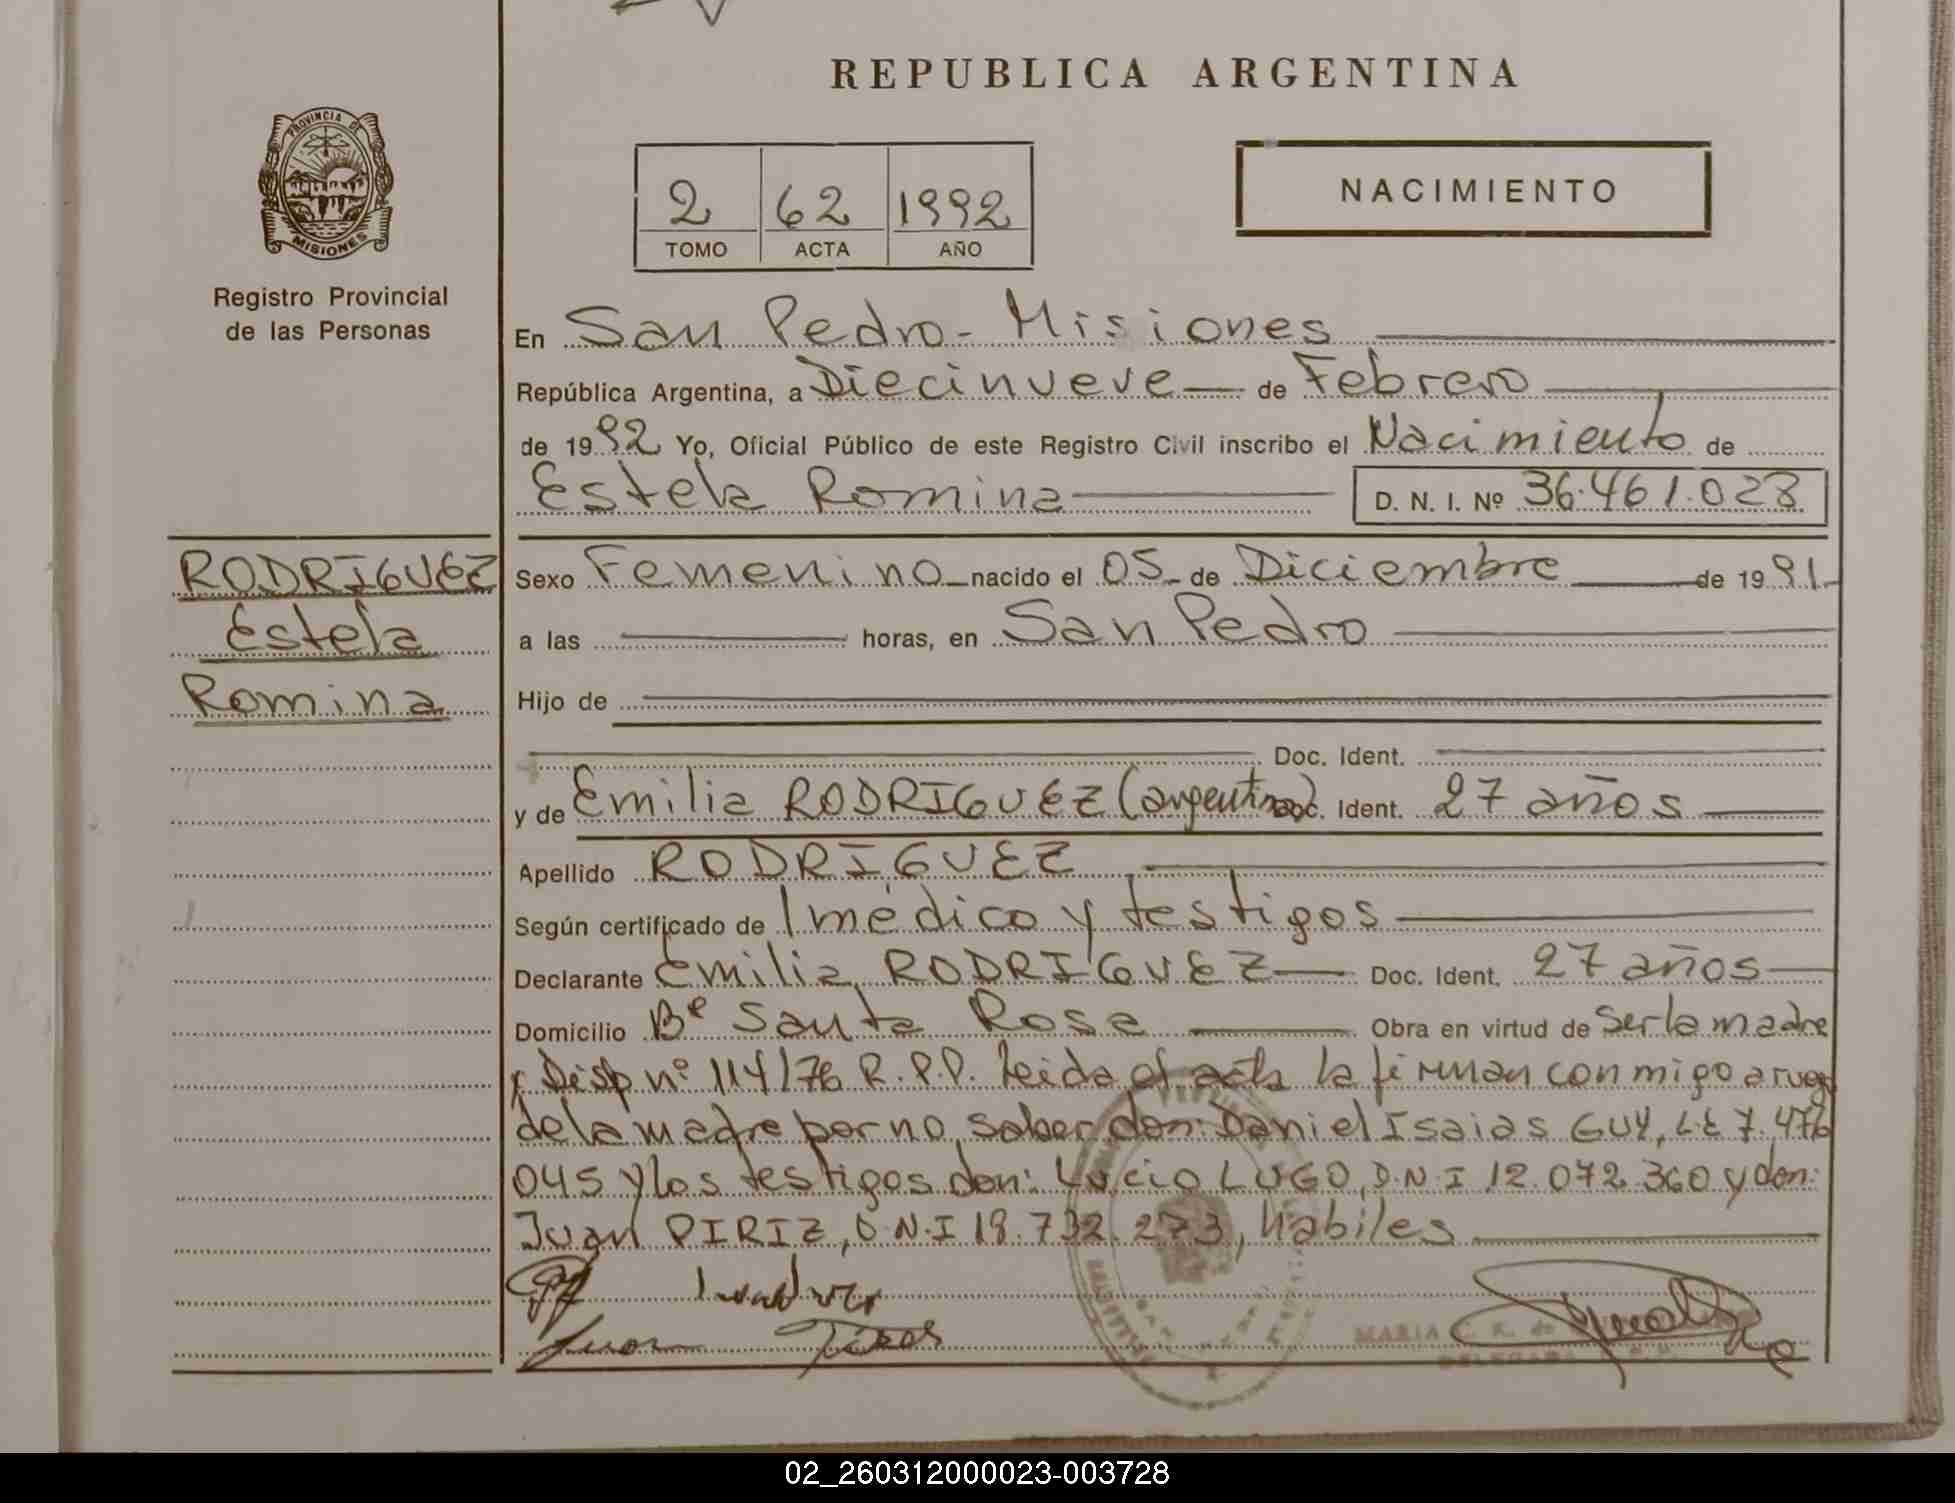 REPUBLICA ARGENTINA
PROVINCIA DE
MISIONES
Registro Provincial
de las Personas
2 62 1992
TOMO ACTA AÑO
NACIMIENTO
En San Pedro - Misiones
República Argentina, a Diecinueve de Febrero
de 1992 Yo, Oficial Público de este Registro Civil inscribo el Nacimiento de
Estela Romina D. N. I. Nº 36.461.023
RODRIGUEZ
Estela
Romina
Sexo Femenino nacido el 05 de Diciembre de 1991
a las horas, en San Pedro
Hijo de
Doc. Ident.
y de Emilia RODRIGUEZ (argentina) Doc. Ident. 27 años
Apellido RODRIGUEZ
Según certificado de 1 médico y testigos
Declarante Emilia RODRIGUEZ Doc. Ident. 27 años
Domicilio Bº Santa Rosa Obra en virtud de ser la madre
y Disp nº 114/76 R.P.P. Leida el acta la firman conmigo a ruego
de la madre por no saber don: Daniel Isaias GUY, L.E 7.476
045 y los testigos don: Lucio LUGO, D.N.I 12.072.360 y don:
Juan PIRIZ, D.N.I 18.732.273, habiles
MARIA
DELEGADA
02_260312000023-003728